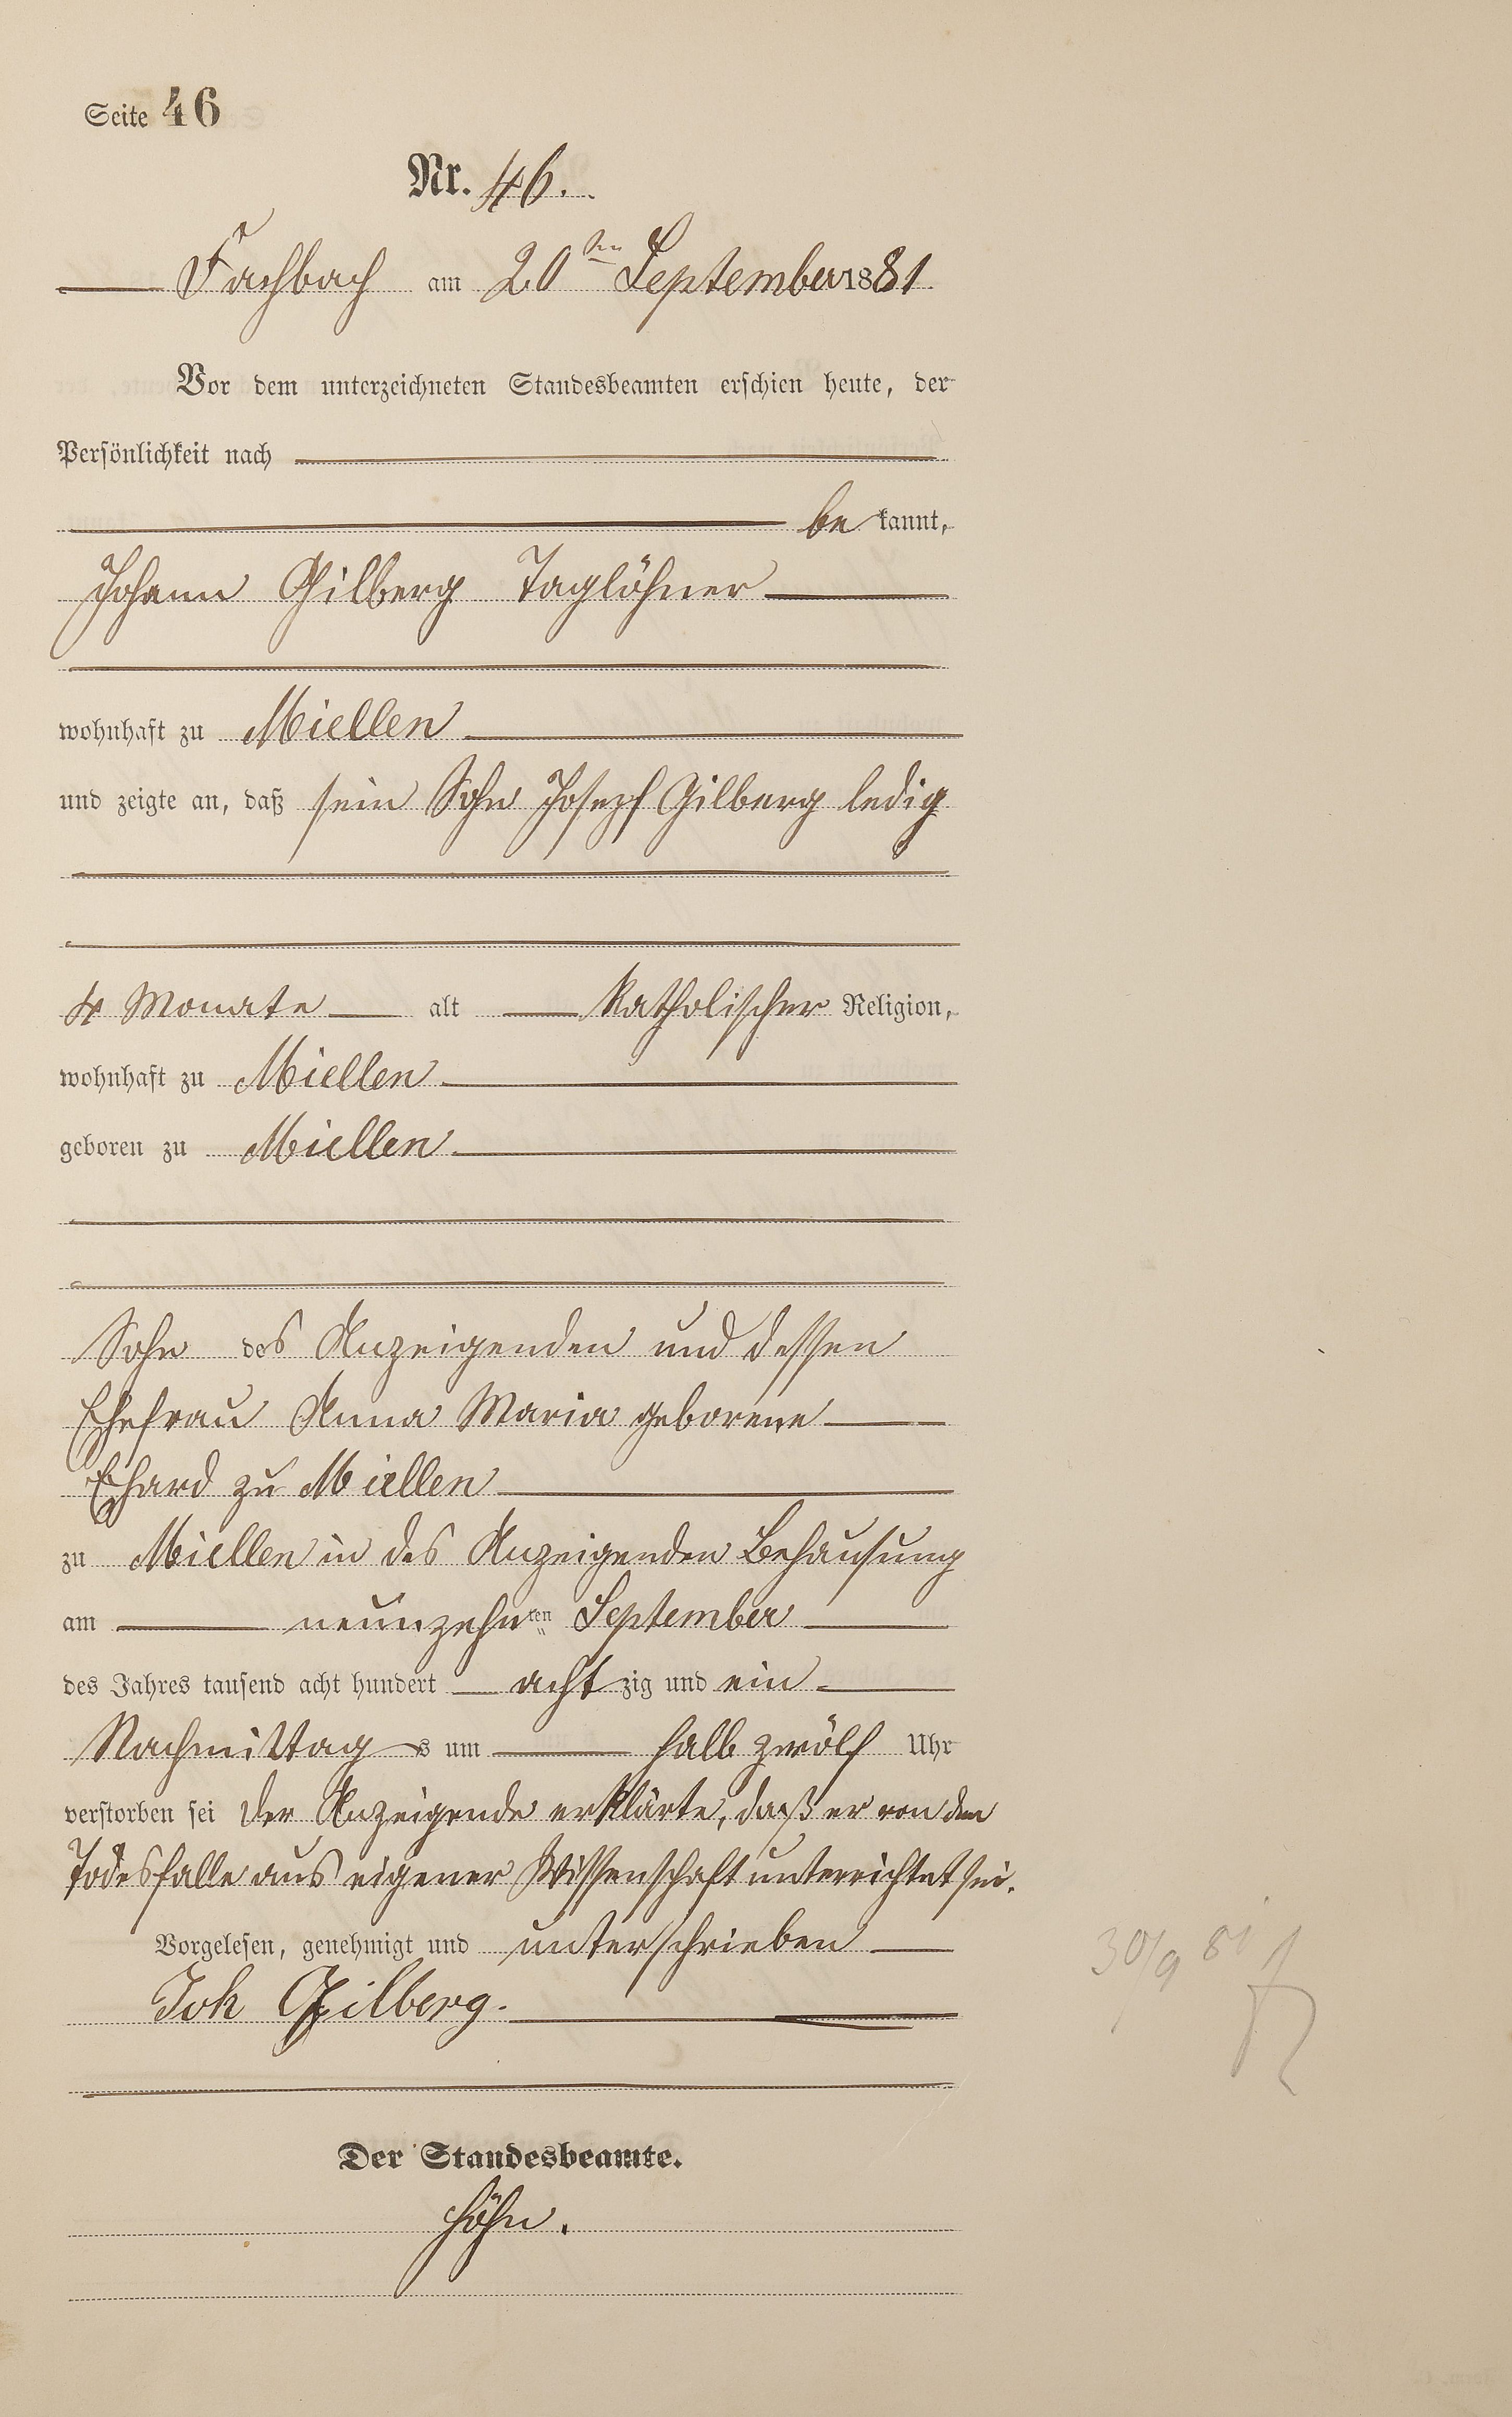 Seite 46
Nr. 46.
Fachbach am 20ten September 1881.
Vor dem unterzeichneten Standesbeamten erschien heute, der
Persönlichkeit nach
be kannt,
Johann Gilberg Taglöhner
wohnhaft zu Miellen
und zeigte an, daß sein Sohn Joseph Gilberg ledig
4 Monate alt katholischer Religion,
wohnhaft zu Miellen
geboren zu Miellen
Sohn des Anzeigenden und dessen
Ehefrau Anna Maria geborene
Ehard zu Miellen
zu Miellen in des Anzeigenden Behausung
am neunzehnten September
des Jahres tausend acht hundert achtzig und ein
Nachmittags um halb zwölf Uhr
verstorben sei Der Anzeigende erklärte, daß er von dem
Todesfalle aus eigener Wissenschaft unterrichtet sei.
Vorgelesen, genehmigt und unterschrieben
Joh Gilberg.
30/9 81
Der Standesbeamte.
Höhn.